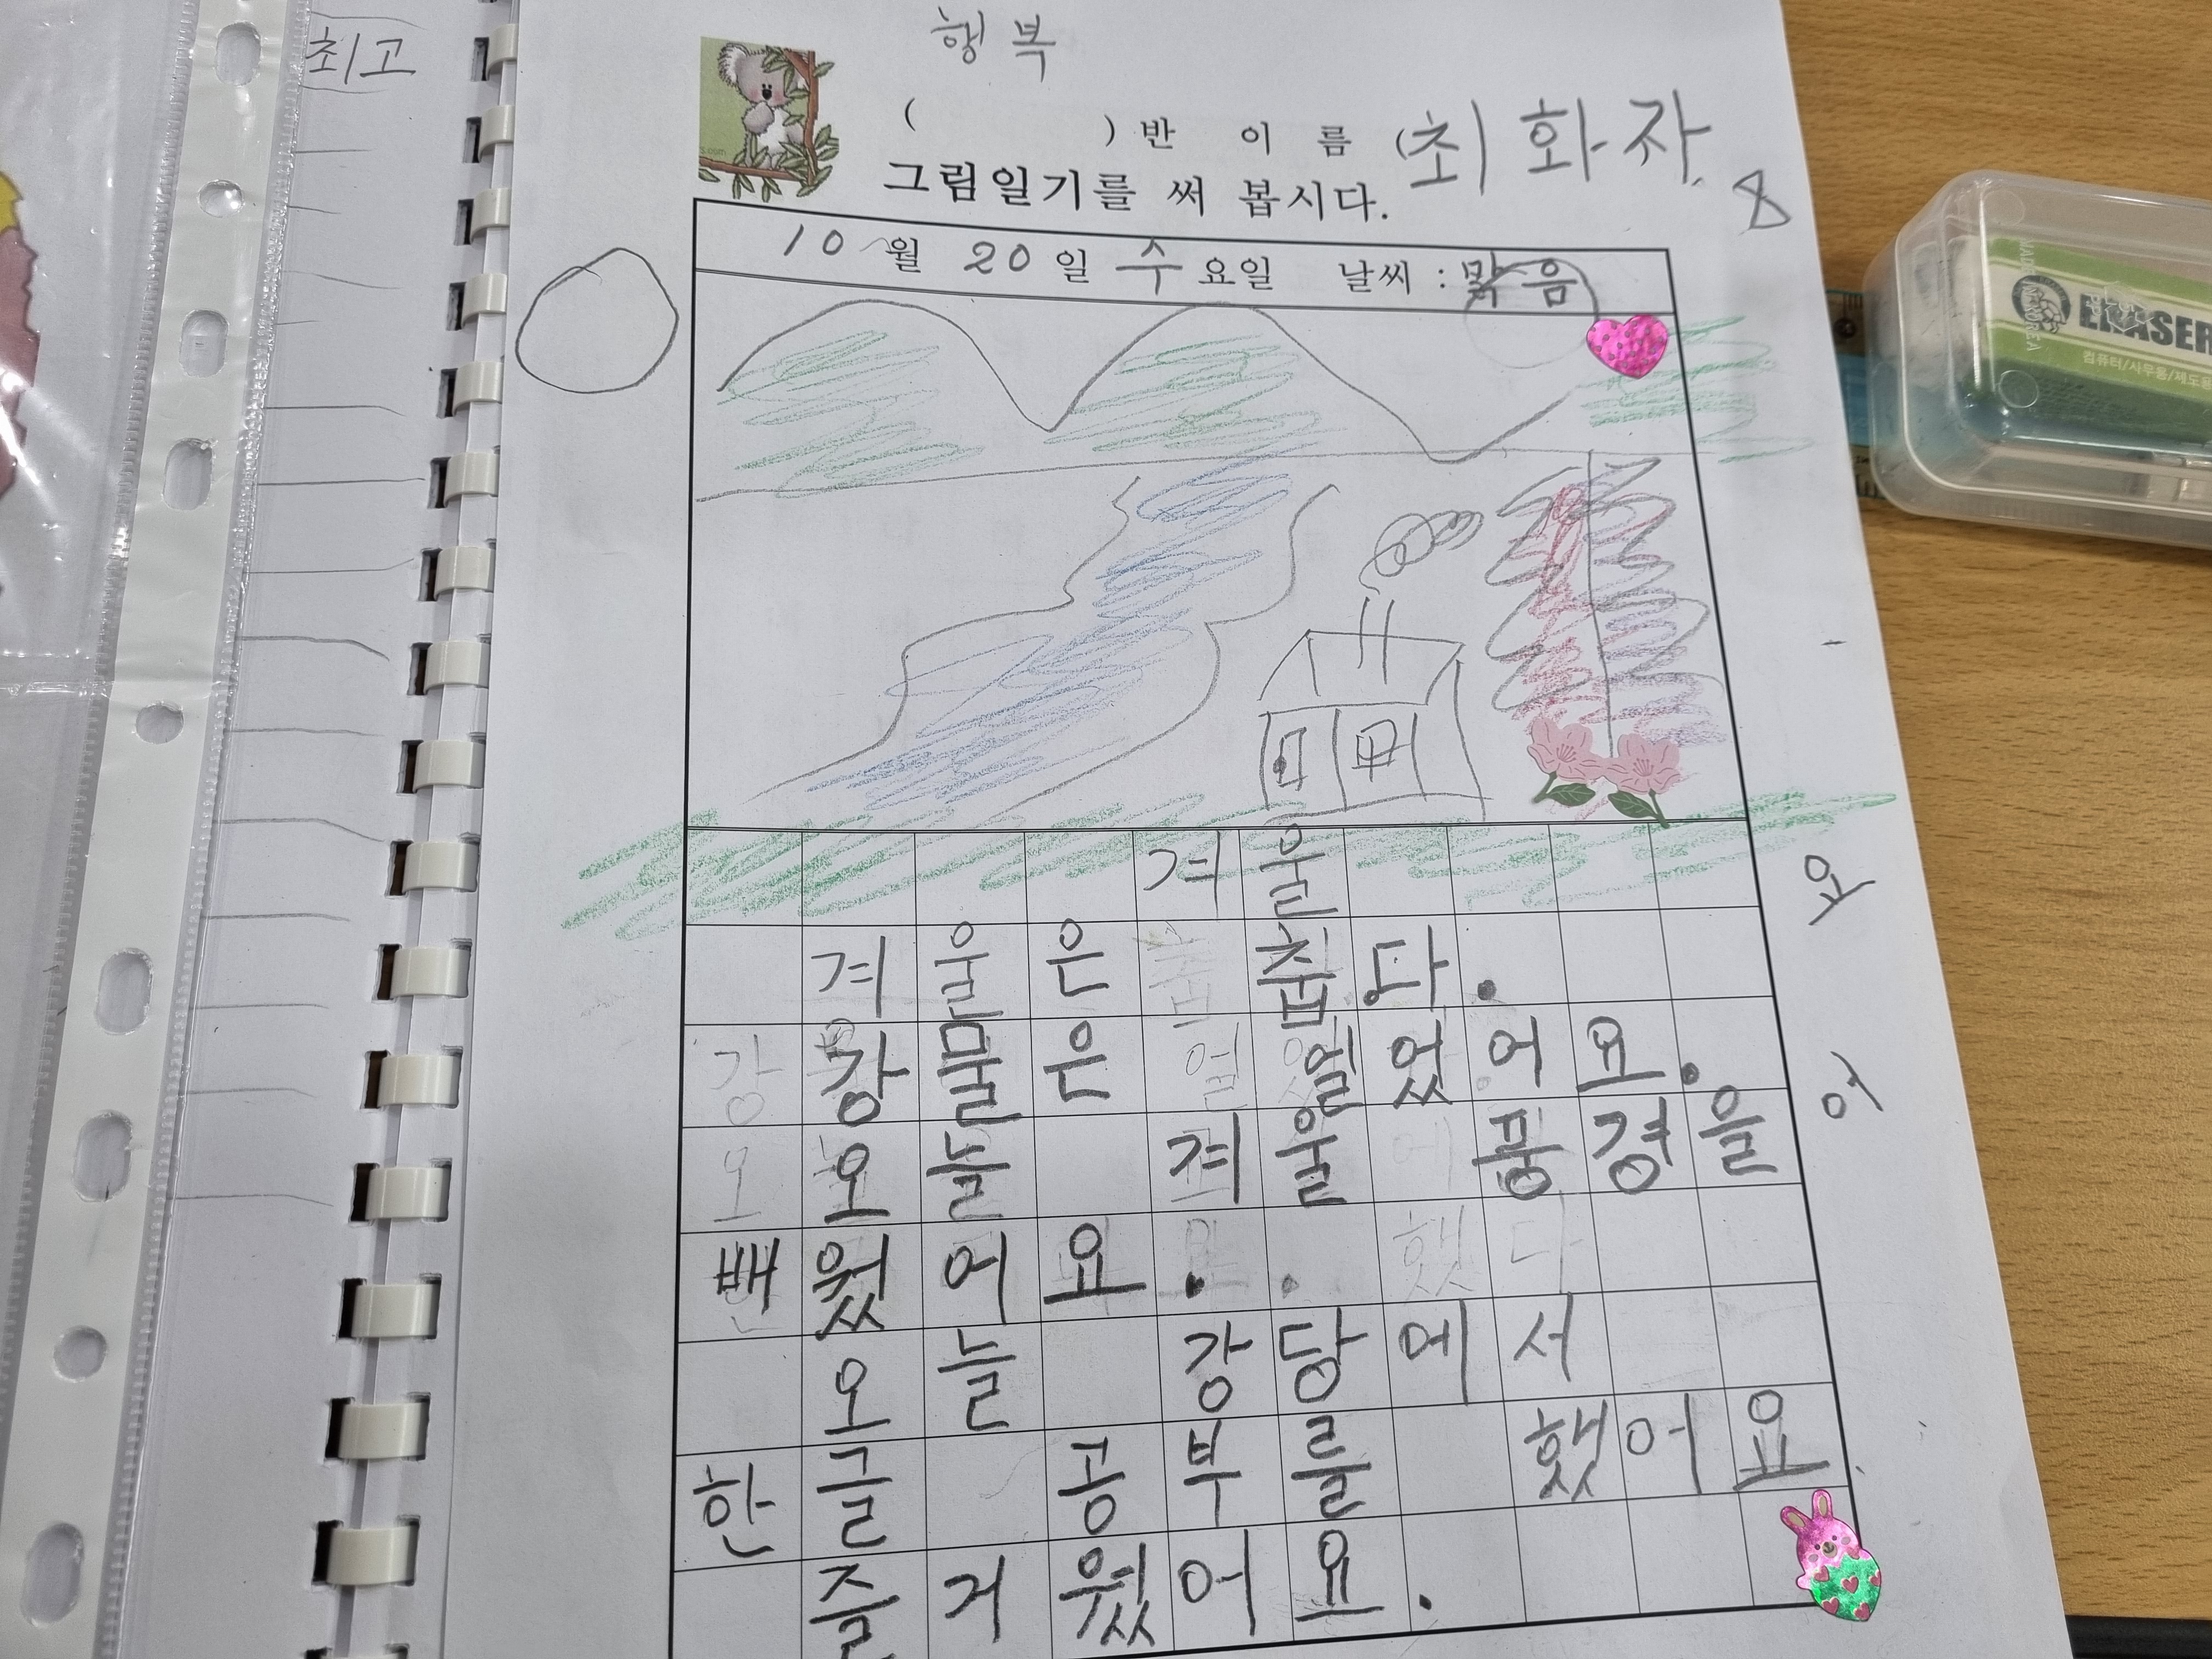 최고
행복
( ) 반 이름 (최화자
그림일기를 써 봅시다.
8
10월 20일 수요일 날씨 : 맑음
겨울
겨울은 춥다.
강물은 얼었어요.
오늘 겨울 풍경을
배웠어요.
오늘 강당에서
한글 공부를 했어요
즐거웠어요.
요
어
ERASER
컴퓨터/사무용/제도